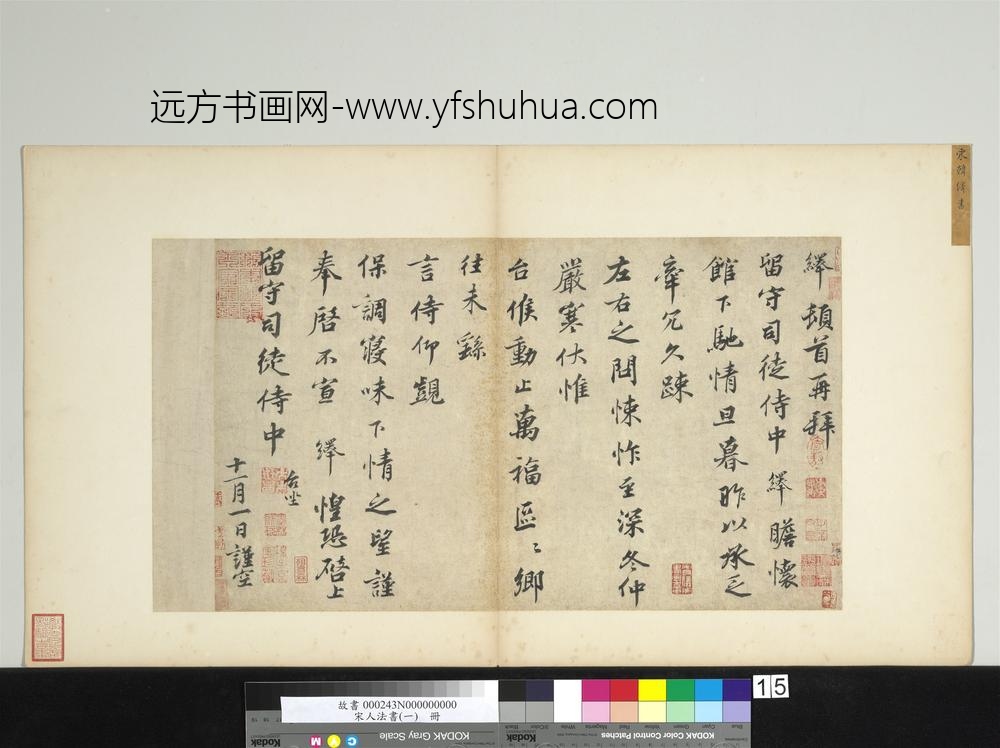 远方书画网-www.yfshuhua.com
宋韓繹書
繹頓首再拜
留守司徒侍中 繹瞻懷
館下馳情旦暮昨以承乏
牽冗久踈
左右之問悚怍至深冬仲
嚴寒伏惟
台候動止萬福區〻鄉
往未繇
言侍仰覬
保調寢味下情之望謹
奉啓不宣 繹惶恐啓上
留守司徒侍中
台坐
十一月一日謹空
故書 000243N000000000
宋人法書(一) 冊
15
KODAK Gray Scale
KODAK Color Control Patches
Kodak
C
Y
M